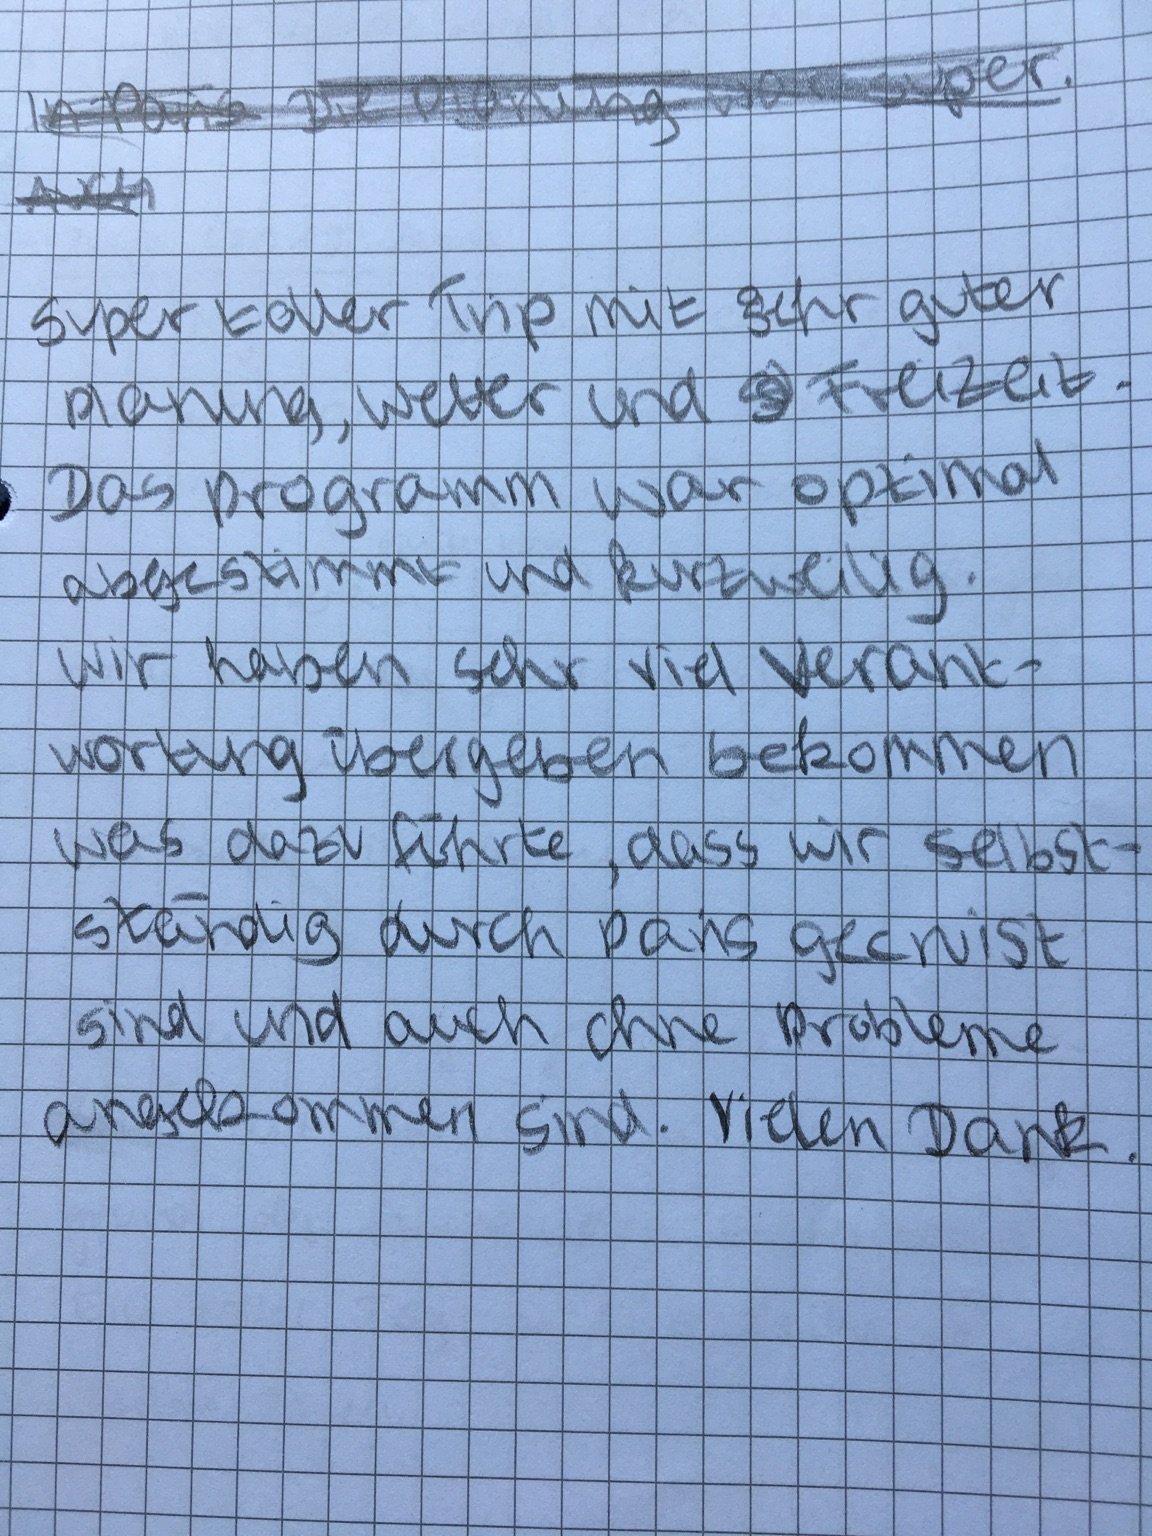 In Paris Die Planung war super.
Auch
super toller Trip mit sehr guter
planung, wetter und Freizeit.
Das programm war optimal
abgestimmt und kurzweilig.
wir haben sehr viel Verant-
wortung übergeben bekommen
was dazu führte, dass wir selbst-
ständig durch paris gecruist
sind und auch ohne probleme
angekommen sind. Vielen Dank.